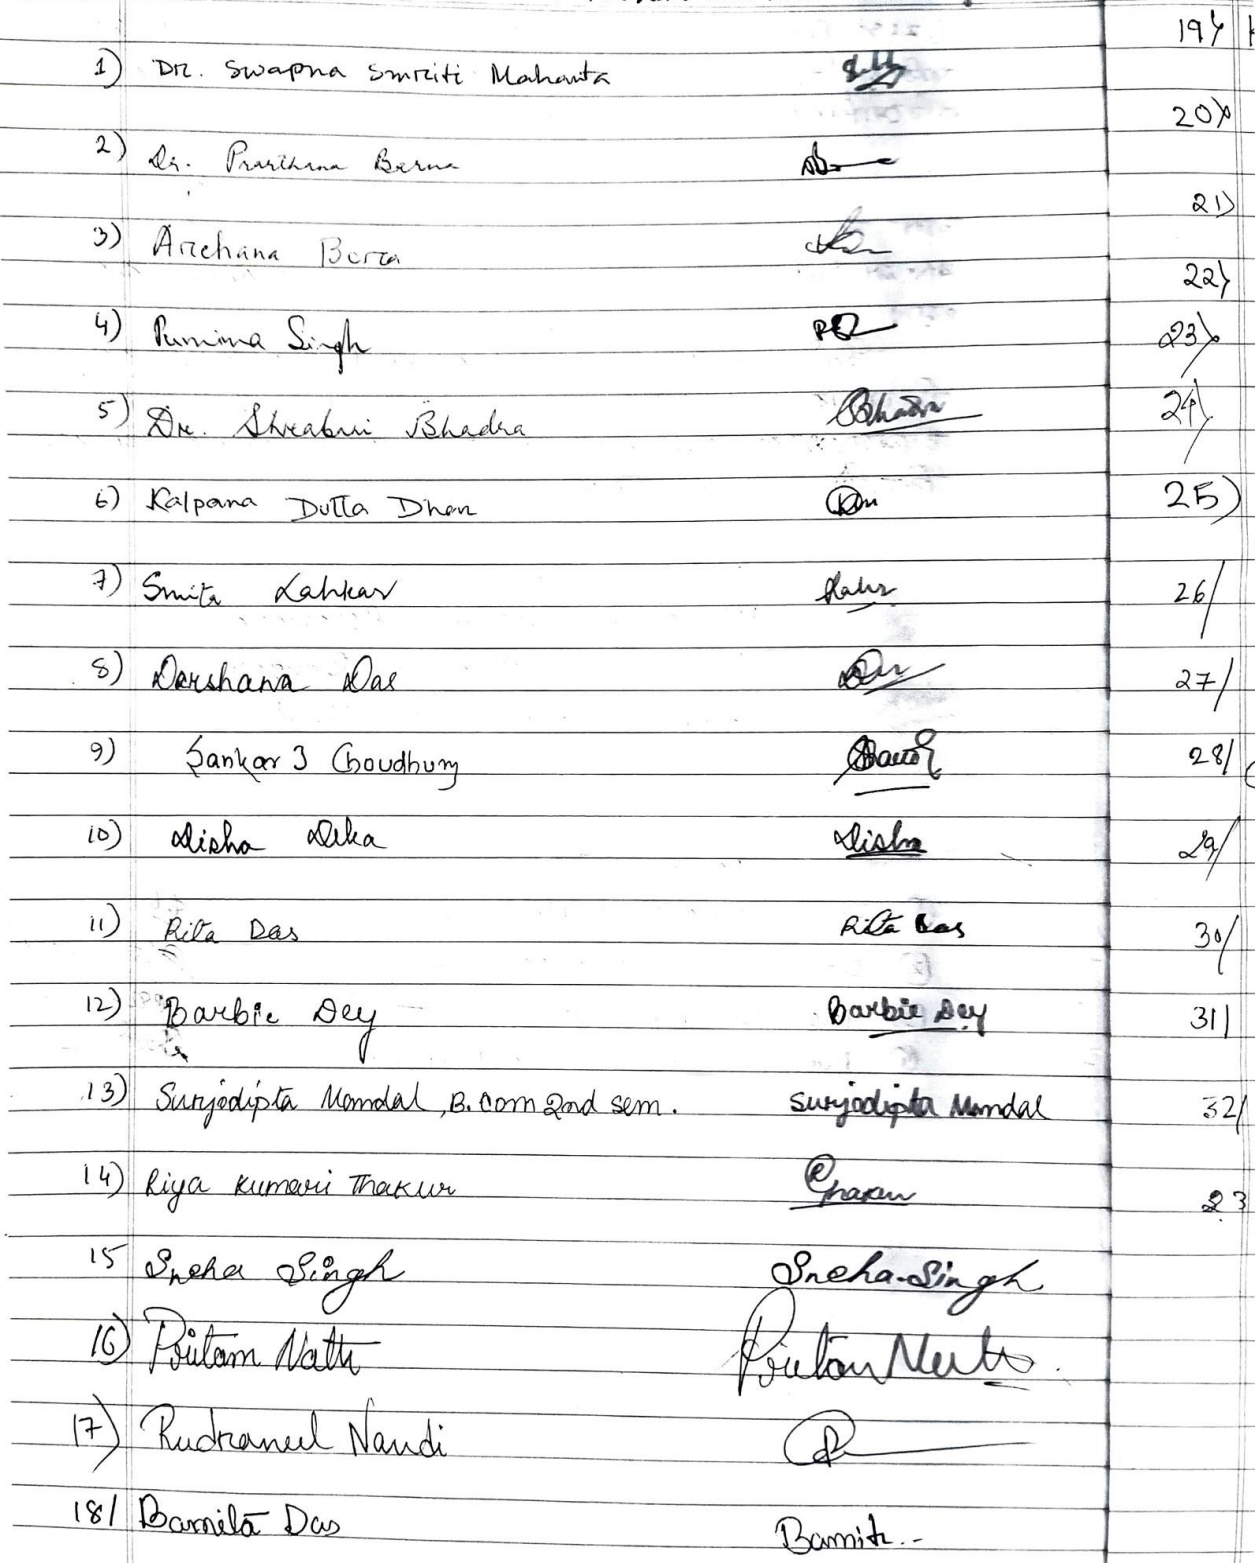 1) Dr. Swapna Smriti Mahanta
2) Dr. Prarthana Barua
3) Archana Bora
4) Purnima Singh
5) Dr. Shrabani Bhadra Bhadra
6) Kalpana Dutta Dhar
7) Smita Lahkar
8) Darshana Das
9) Sankar J Choudhury
10) Disha Deka Disha
11) Rita Das Rita Das
12) Barbie Dey Barbie Dey
13) Surjodipta Mondal, B.Com 2nd sem. Surjodipta Mondal
14) Riya Kumari Thakur
15 Sneha Singh Sneha Singh
16) Pritam Nath Pritam Nath
17) Rudraneel Nandi
18/ Barnita Das
19)
20)
21)
22)
23)
24)
25)
26/
27/
28/
29/
30/
31)
32/
23